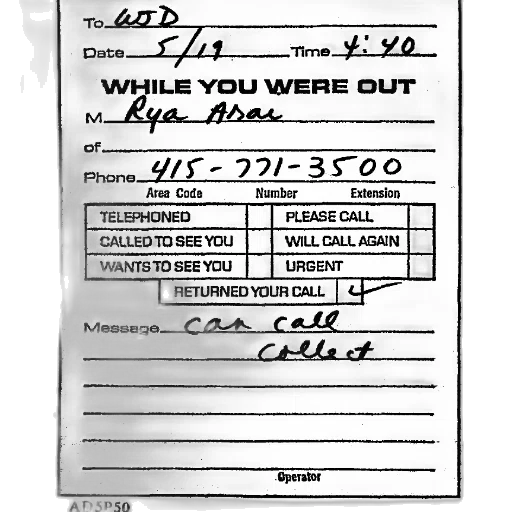 To WJD
Date 5/19 Time 4:40
WHILE YOU WERE OUT
M Rya Asai
of
Phone 415-771-3500
Area Code Number Extension
TELEPHONED PLEASE CALL
CALLED TO SEE YOU WILL CALL AGAIN
WANTS TO SEE YOU URGENT
RETURNED YOUR CALL ✓
Message can call
collect
Operator
AD5P50